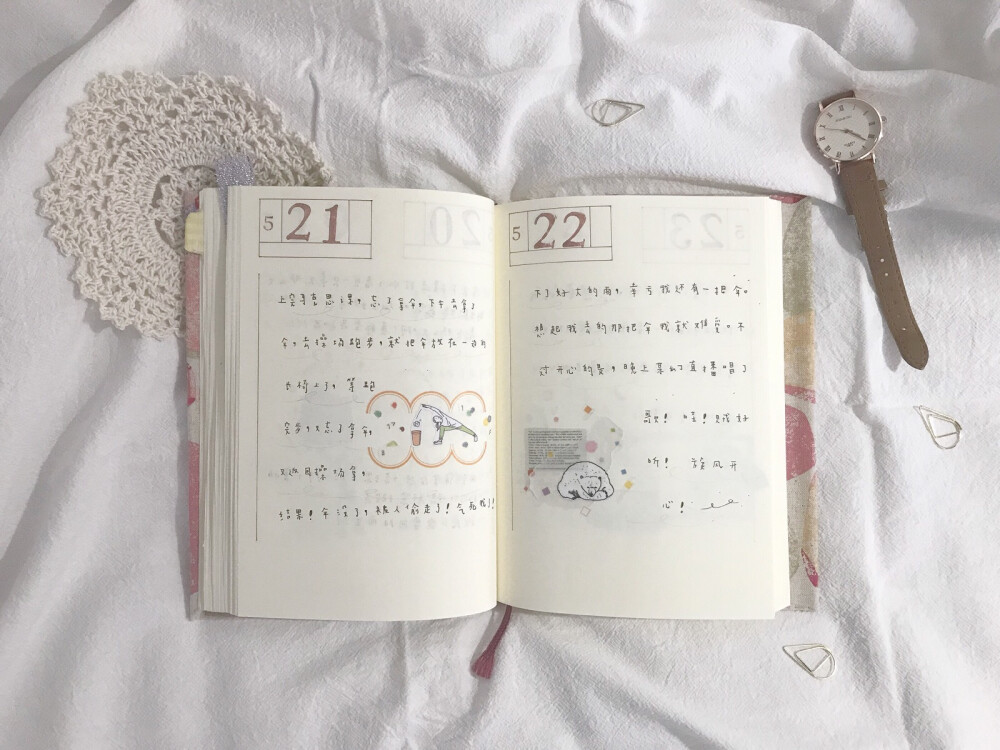 5 21
上完马克思课，忘了拿伞，下午去拿了
伞，去操场跑步，就把伞放在一旁的
椅上了，等跑
完步，又忘了拿伞，
又返回操场拿，
结果！伞没了，被人偷走了！气死我了！
5 22
下了好大的雨，幸亏我还有一把伞。
想起我丢的那把伞我就难受。不
过开心的是，晚上菜直播唱了
歌！哇！贼好
听！旋风开
心！